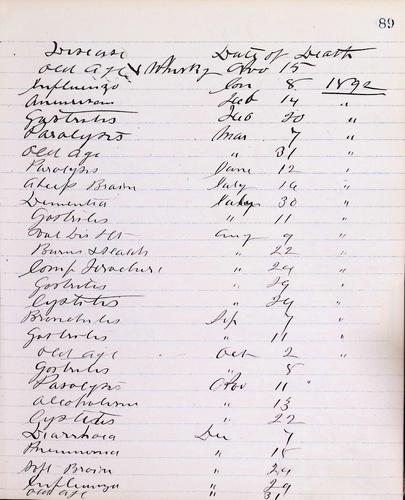 89
Disease Date of Death
Old Age & Whisky Nov 15
Influenza Jan 8 1892
Aneurism Feb 14 "
Gastritis Feb 20 "
Paralysis Mar 7 "
Old Age " 31 "
Paralysis June 12 "
Brain July 16 "
Dementia July 30 "
Gastritis " 11 "
Aug 9 "
Burns & Scalds " 22 "
Comp Fracture " 24 "
Gastritis " 29 "
Cystitis " 29 "
Bronchitis Sep 7 "
Gastritis " 11 "
Old Age Oct 2 "
Gastritis " 8
Paralysis Nov 11 "
Alcoholism " 13
Cystitis " 22
Diarrhoea Dec 7
Pneumonia " 15
Soft Brain " 24
Influenza " 29
Old Age " 31